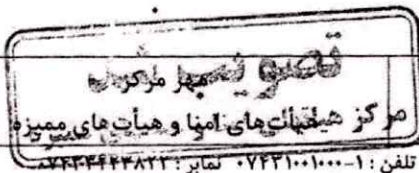 تصویب شد
مهر مرکز
مرکز هیأت‌های امنا و هیأت‌های ممیزه
تلفن : ۱-۰۷۴۳۱۰۰۱۰۰۰ نمابر :